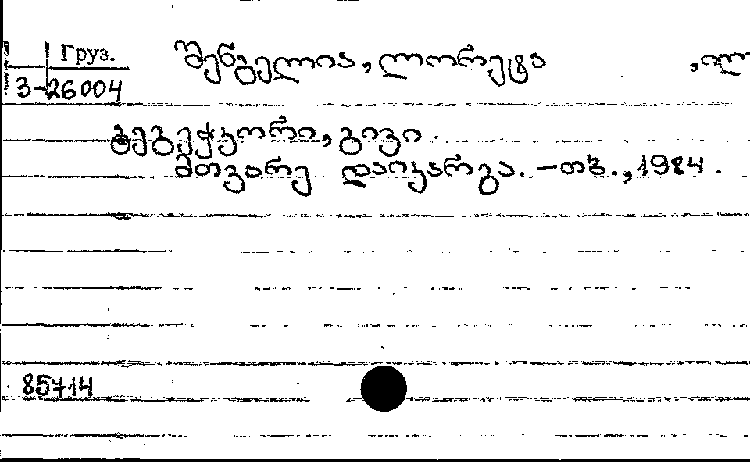 Груз.
3-26004
შენგელია, ლორეტა , ილ
გეგეჭკორი, გივი.
მთვარე დაიკარგა. – თბ., 1984.
85714